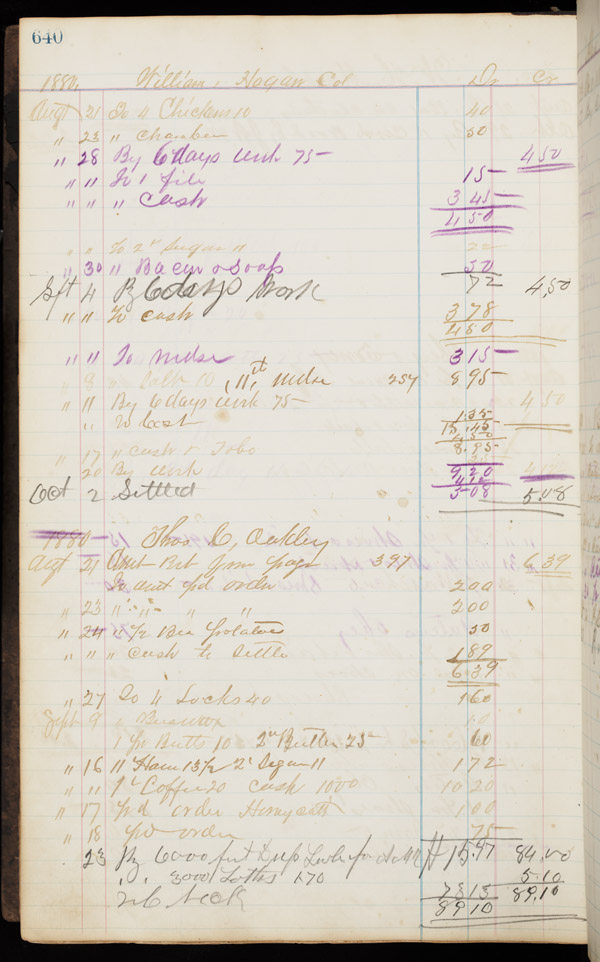 640
1880. William Hogan Col Dr Cr
Augt 21 To 4 Chickens 10 40
" 23 " Chamber 50
" 28 By 6 days work 75 - 4 50
" " To 1 file 15 -
" " " Cash 3 45 -
4 50
" " To 2 " Sugar 11 22
" 30 " Bacon & Soap 50
72
Sept 4 By 6 days Work 4,50
" " To cash 3 78
4 50
" " To Mdse 3 15 -
" 9 " 10 , 11, Mdse 257 8 95
" 11 By 6 days work 75 - 4 50
" To Cash 1 35
13 45
4 50
8 95
" 17 " Cash & Tobo
" 20 By work 9 20
4 12
Oct 2 Settled 5 08 5,08
1880 - Thos C, Oakley
Augt 21 Amt Brt from page 397 6 39
To amt pd order 2 00
" 23 " " " " 2 00
" 24 " 1/2 Bu Potatoes 50
" " " Cash to Settle 1 89
6 39
" 27 To 4 Locks 40 1 60
Sept 9 "
1 pr Butts 10 2 " Butter 25 60
" 16 11 " Ham 13 1/2 2 " Sugar 11 1 72
" " 1 " Coffee 20 Cash 1000 10 20
" 17 pd order 1 00
" 18 pd order 75 -
23 By 6000 feet $15.97 84.00
" " 3000 Laths 170 5.10
73 13 89.10
89 10